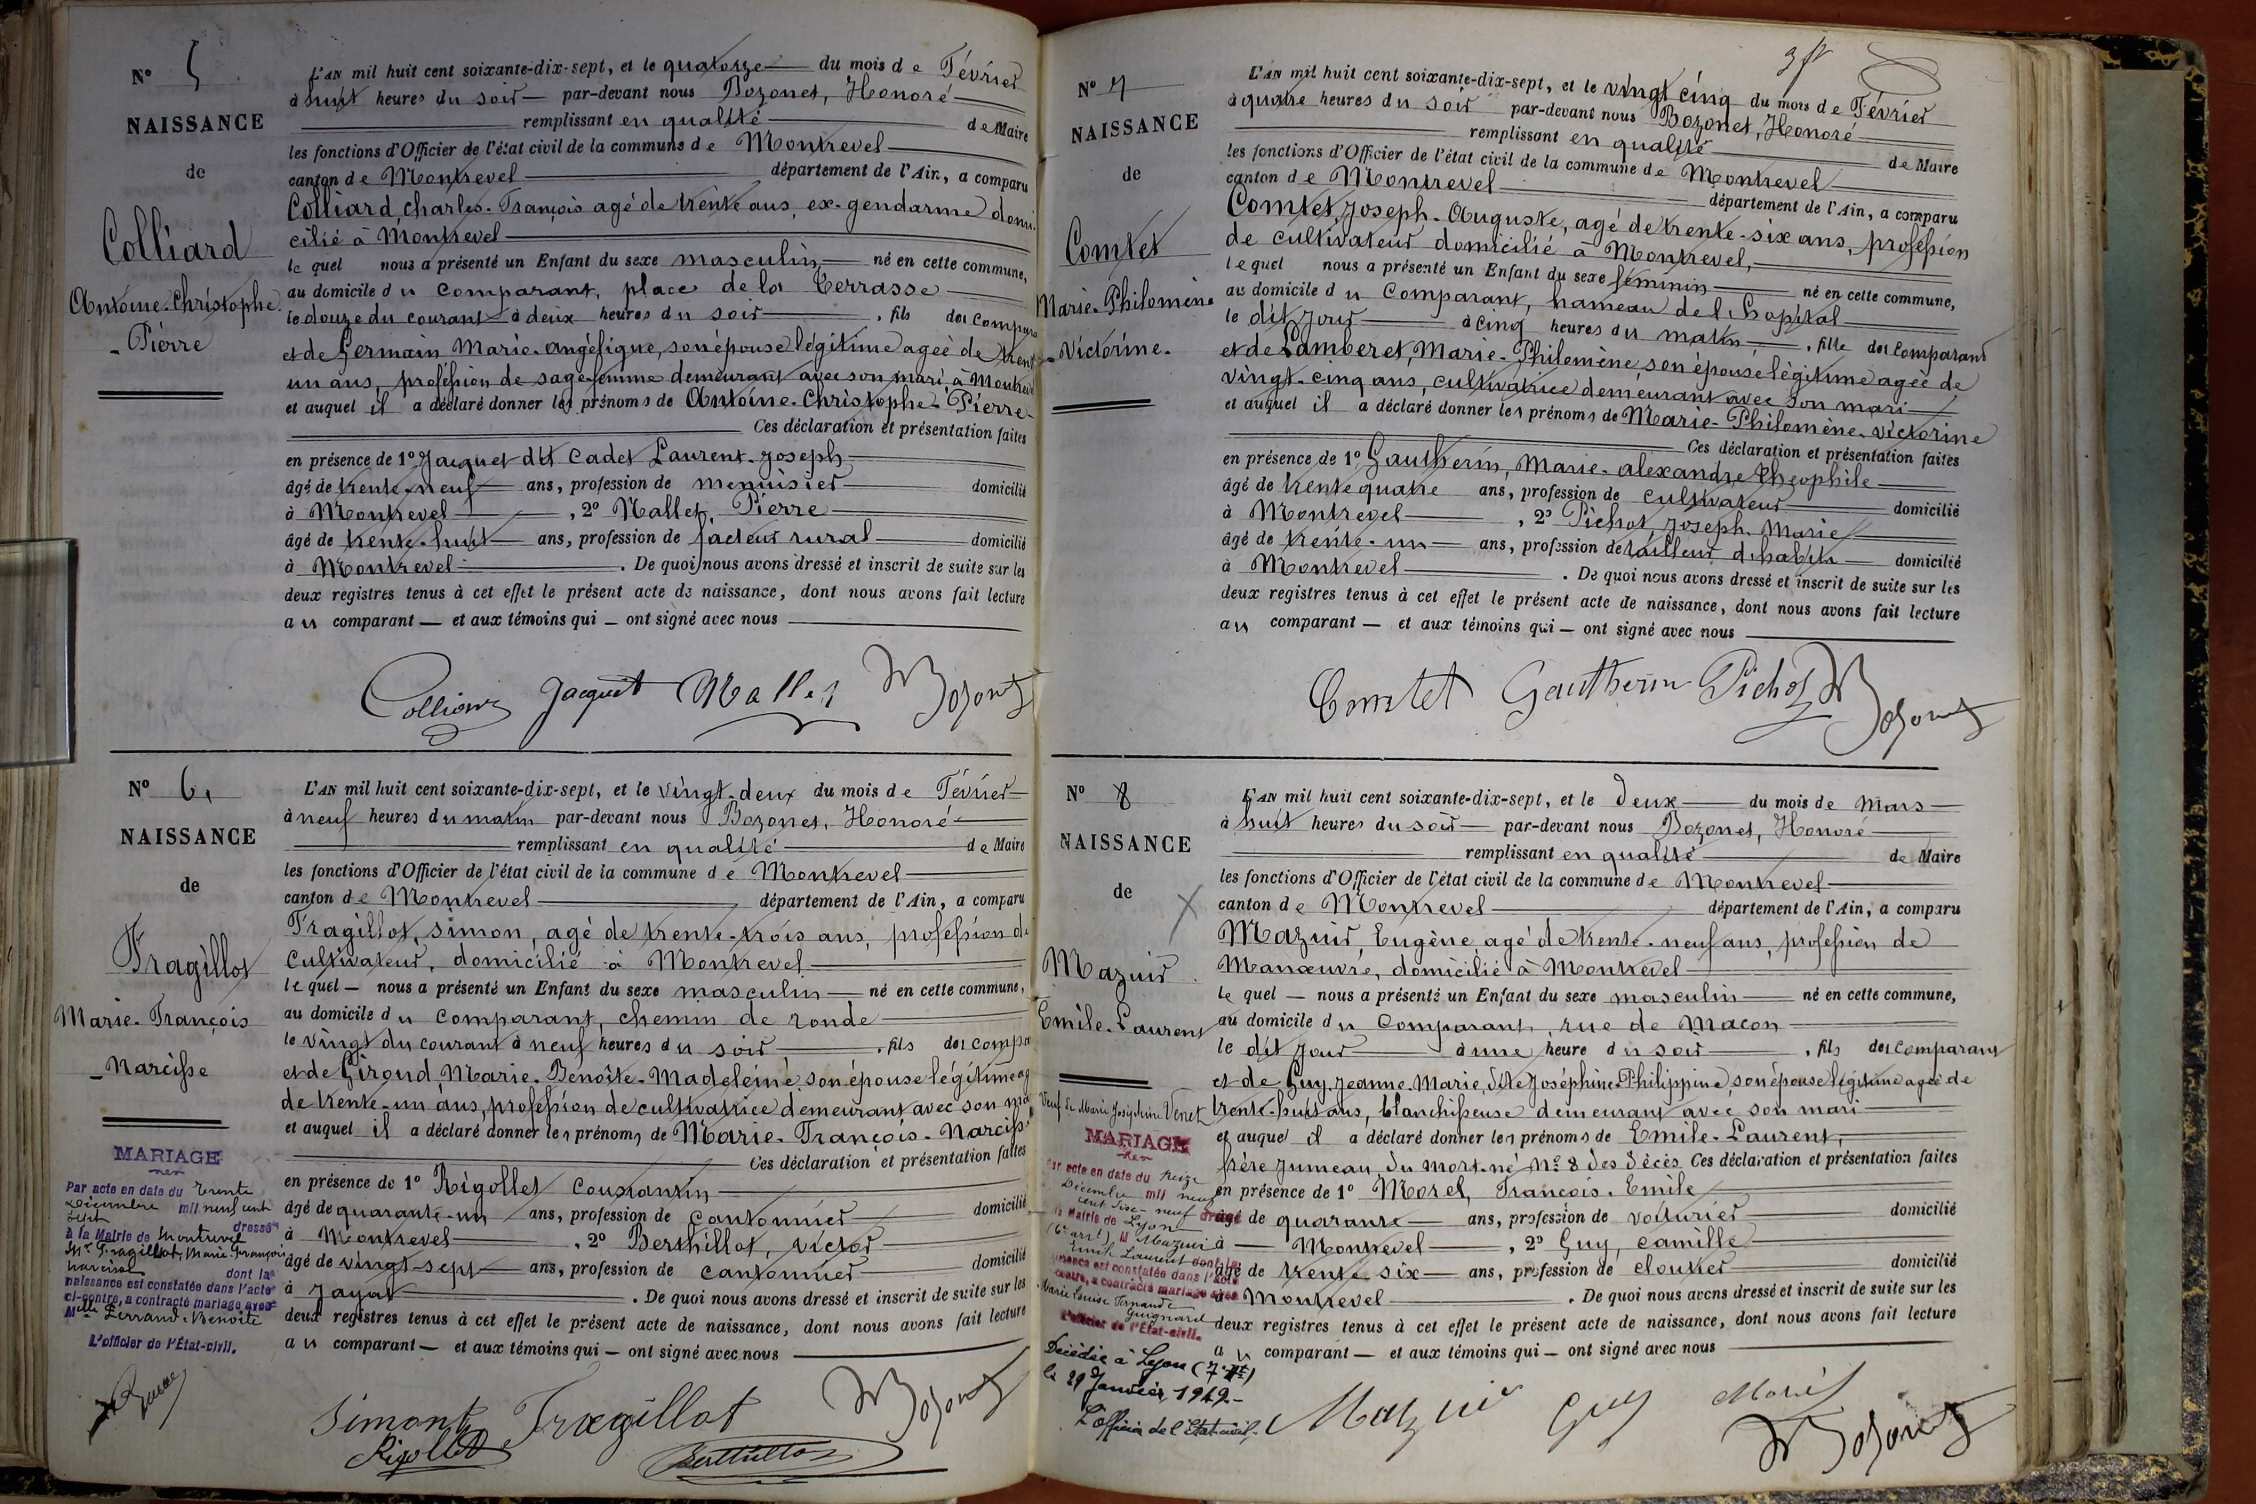 N° 5
NAISSANCE
de
Colliard
Antoine-Christophe
- Pierre
L'AN mil huit cent soixante-dix-sept, et le quatorze du mois de Février
à huit heures du soir par-devant nous Bozonet, Honoré
remplissant en qualité de Maire
les fonctions d'Officier de l'état civil de la commune de Montrevel
canton de Montrevel département de l'Ain, a comparu
Colliard, Charles-François agé de trente ans, ex-gendarme domi-
cilié à Montrevel
le quel nous a présenté un Enfant du sexe masculin né en cette commune,
au domicile du comparant, place de la Terrasse
le douze du courant à deux heures du soir, fils du compara
et de Germain Marie-angélique, son épouse légitime agée de trent
un ans, profession de sage-femme demeurant avec son mari, à Montrevel
et auquel il a déclaré donner les prénoms de Antoine-Christophe-Pierre-
Ces déclaration et présentation faites
en présence de 1° Jacquet dit Cadet Laurent-Joseph
âgé de trente-neuf ans, profession de menuisier domicilié
à Montrevel, 2° Mallet, Pierre
âgé de trente-huit ans, profession de facteur rural domicilié
à Montrevel. De quoi nous avons dressé et inscrit de suite sur les
deux registres tenus à cet effet le présent acte de naissance, dont nous avons fait lecture
au comparant — et aux témoins qui — ont signé avec nous
Colliard Jacquet Mallet Bozonet
N° 6
NAISSANCE
de
Fragillot
Marie-François
- Narcisse
MARIAGE
Par acte en date du trente
Décembre mil neuf cent
sept dressé
à la Mairie de Montrevel
Mr Fragillot, Marie-François
Narcisse dont la
naissance est constatée dans l'acte
ci-contre, a contracté mariage avec
Melle Ferrand, Benoîte
L'officier de l'État-civil.
L'AN mil huit cent soixante-dix-sept, et le vingt-deux du mois de Février
à neuf heures du matin par-devant nous Bozonet, Honoré
remplissant en qualité de Maire
les fonctions d'Officier de l'état civil de la commune de Montrevel
canton de Montrevel département de l'Ain, a comparu
Fragillot, Simon, agé de trente-trois ans, profession de
cultivateur, domicilié à Montrevel
le quel — nous a présenté un Enfant du sexe masculin né en cette commune,
au domicile du comparant, chemin de ronde
le vingt du courant à neuf heures du soir, fils du compa
et de Giroud Marie-Benoîte-Madeleine, son épouse légitime ag
de trente-un ans, profession de cultivatrice demeurant avec son ma
et auquel il a déclaré donner les prénoms de Marie-François-Narciss
Ces déclaration et présentation faites
en présence de 1° Rigollet Constantin
âgé de quarante-un ans, profession de cantonnier domicilié
à Montrevel, 2° Berthillot, Victor
âgé de vingt-sept ans, profession de cantonnier domicilié
à Jayat. De quoi nous avons dressé et inscrit de suite sur les
deux registres tenus à cet effet le présent acte de naissance, dont nous avons fait lecture
au comparant — et aux témoins qui — ont signé avec nous
Simont Fragillot Bozonet
Rigollet Berthillot
N° 7
NAISSANCE
de
Comtet
Marie-Philomène
-Victorine-
L'AN mil huit cent soixante-dix-sept, et le vingt cinq du mois de Février
à quatre heures du soir par-devant nous Bozonet, Honoré
remplissant en qualité de Maire
les fonctions d'Officier de l'état civil de la commune de Montrevel
canton de Montrevel département de l'Ain, a comparu
Comtet, Joseph-Auguste, agé de trente-six ans, profession
de cultivateur domicilié à Montrevel,
lequel nous a présenté un Enfant du sexe féminin né en cette commune,
au domicile du comparant, hameau de l'hopital
le dit jour à cinq heures du matin, fille du comparant
et de Lamberet, Marie-Philomène, son épouse légitime agée de
vingt-cinq ans, cultivatrice demeurant avec son mari
et auquel il a déclaré donner les prénoms de Marie-Philomène-Victorine
Ces déclaration et présentation faites
en présence de 1° Gautherin, Marie-alexandre Théophile
âgé de trente quatre ans, profession de cultivateur domicilié
à Montrevel, 2° Pichot, Joseph Marie
âgé de trente-un ans, profession de tailleur d'habits domicilié
à Montrevel. De quoi nous avons dressé et inscrit de suite sur les
deux registres tenus à cet effet le présent acte de naissance, dont nous avons fait lecture
au comparant — et aux témoins qui — ont signé avec nous
Comtet Gautherin Pichot Bozonet
N° 8
NAISSANCE
de
Mazuir
Emile-Laurent
Veuf de Marie Joséphine Venet
MARIAGE
Par acte en date du treize
Décembre mil neuf
cent dix-neuf dressé
à la Mairie de Lyon
(6e arrt), M Mazuir
Emile Laurent dont la
naissance est constatée dans l'acte
ci-contre, a contracté mariage avec
Marie Louise Fernande
Guignard
L'officier de l'État-civil.
Décédé à Lyon (7e At)
le 29 Janvier 1949.-
L'Officier de l'Etat-civil,
L'AN mil huit cent soixante-dix-sept, et le deux du mois de Mars
à huit heures du soir par-devant nous Bozonet, Honoré
remplissant en qualité de Maire
les fonctions d'Officier de l'état civil de la commune de Montrevel
canton de Montrevel département de l'Ain, a comparu
Mazuir, Eugène, agé de trente-neuf ans, profession de
Manœuvre, domicilié à Montrevel
le quel — nous a présenté un Enfant du sexe masculin né en cette commune,
au domicile du comparant, rue de Macon
le dit jour à une heure du soir, fils du comparant
et de Guy, Jeanne-Marie, dite Joséphine-Philippine son épouse légitime agée de
trente-huit ans, blanchisseuse demeurant avec son mari
et auquel il a déclaré donner les prénoms de Emile-Laurent,
frère jumeau du mort-né N° 8 des décès Ces déclaration et présentation faites
en présence de 1° Morel, François-Emile
âgé de quarante ans, profession de voiturier domicilié
à Montrevel, 2° Guy, Camille
âgé de trente-six ans, profession de cloutier domicilié
à Montrevel. De quoi nous avons dressé et inscrit de suite sur les
deux registres tenus à cet effet le présent acte de naissance, dont nous avons fait lecture
au comparant — et aux témoins qui — ont signé avec nous
Mazuir Guy Morel
Bozonet